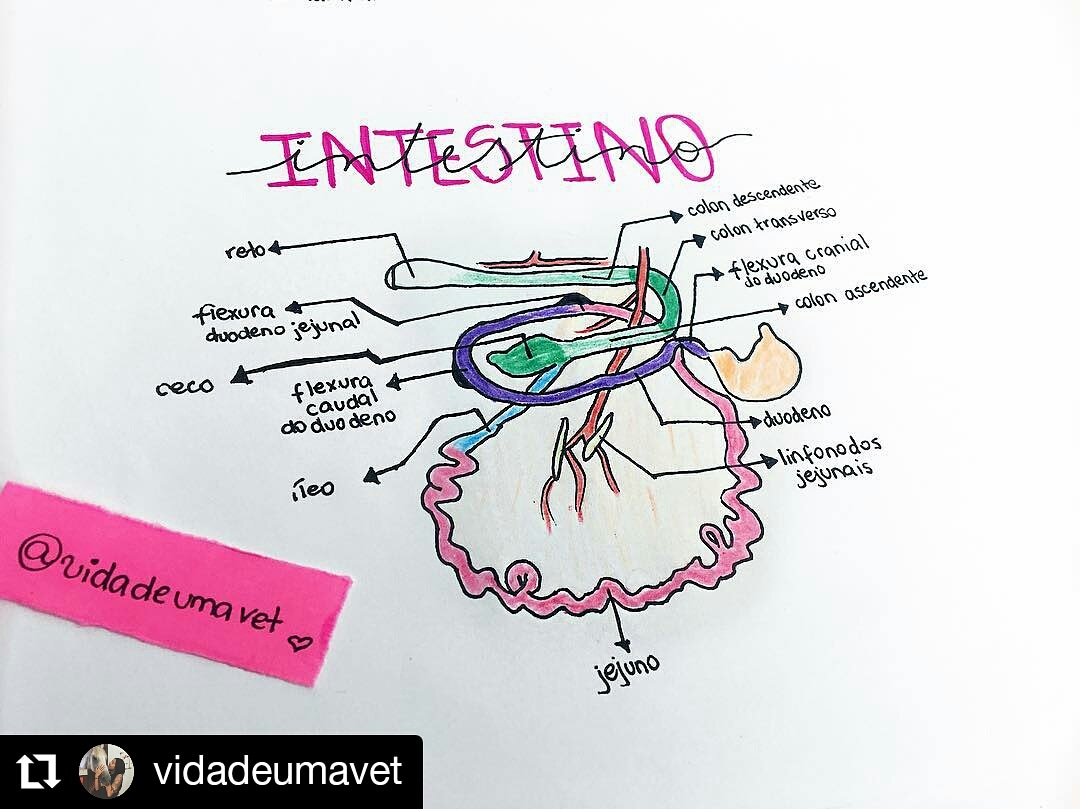 INTESTINO
intestino
colon descendente
colon transverso
reto
flexura cranial
do duodeno
colon ascendente
flexura
duodeno jejunal
ceco
flexura
caudal
do duodeno
duodeno
linfonodos
jejunais
íleo
@vidadeumavet
jejuno
vidadeumavet